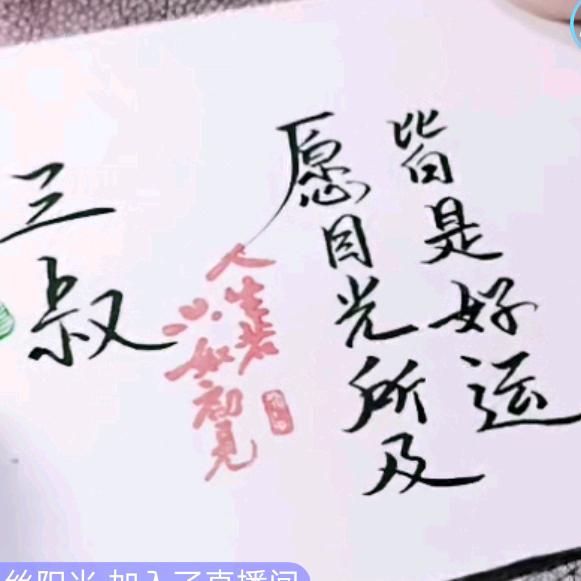 三叔
人生若
只如初見
愿目光所及
皆是好运
丝阳光 加入了直播间